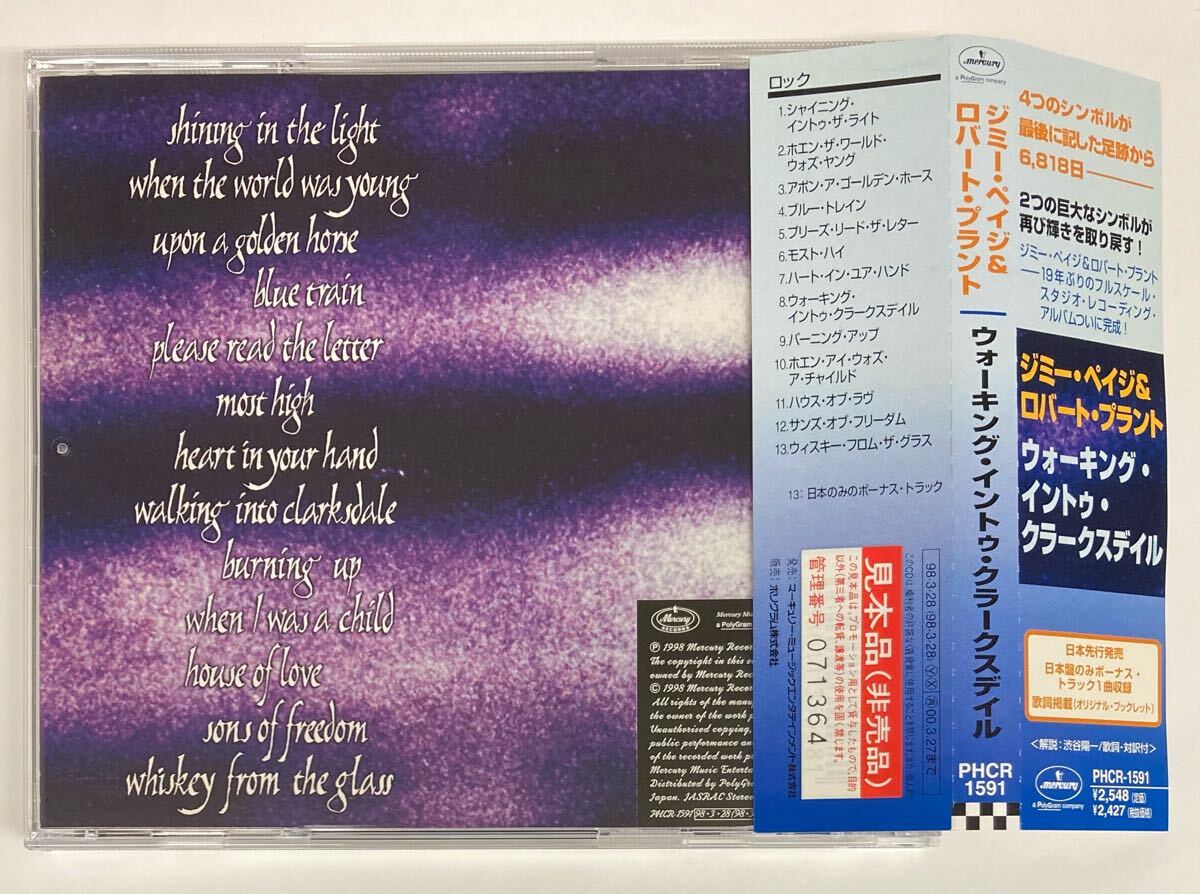 shining in the light
when the world was young
upon a golden horse
blue train
please read the letter
most high
heart in your hand
walking into clarksdale
burning up
when I was a child
house of love
sons of freedom
whiskey from the glass
Mercury
RECORDS
Mercury Mus
a PolyGram
Ⓟ 1998 Mercury Recor
The copyright in this so
owned by Mercury Rec
© 1998 Mercury Reco
All rights of the manu
the owner of the work
Unauthorised copying,
public performance an
of the recorded work p
Mercury Music Entert
Distributed by PolyGra
Japan. JASRAC Stereo
PHCR-1591 98・3・28 (98・3
ロック
1.シャイニング・
イントゥ・ザ・ライト
2.ホエン・ザ・ワールド・
ウォズ・ヤング
3.アポン・ア・ゴールデン・ホース
4.ブルー・トレイン
5.プリーズ・リード・ザ・レター
6.モスト・ハイ
7.ハート・イン・ユア・ハンド
8.ウォーキング・
イントゥ・クラークスデイル
9.バーニング・アップ
10.ホエン・アイ・ウォズ・
ア・チャイルド
11.ハウス・オブ・ラヴ
12.サンズ・オブ・フリーダム
13.ウィスキー・フロム・ザ・グラス
13：日本のみのボーナス・トラック
発売：マーキュリー・ミュージックエンタテインメント株式会社
販売：ポリグラム株式会社
見本品(非売品)
この見本品は、プロモーション用として貸与したもので、目的
以外(第三者への転貸、譲渡等)の使用を固く禁じます。
管理番号 071364
98・3・28 (98・3・28) Ⓨ Ⓧ 西00.3.27まで
mercury
a PolyGram company
ジミー・ペイジ&
ロバート・プラント
ウォーキング・イントゥ・クラークスデイル
PHCR
1591
4つのシンボルが
最後に記した足跡から
6,818日――
2つの巨大なシンボルが
再び輝きを取り戻す！
ジミー・ペイジ&ロバート・プラント
――19年ぶりのフルスケール・
スタジオ・レコーディング・
アルバムついに完成！
ジミー・ペイジ&
ロバート・プラント
ウォーキング・
イントゥ・
クラークスデイル
日本先行発売
日本盤のみボーナス・
トラック1曲収録
歌詞掲載(オリジナル・ブックレット)
〈解説：渋谷陽一/歌詞・対訳付〉
mercury
a PolyGram company
PHCR-1591
¥2,548 (定価)
¥2,427 (税抜価格)